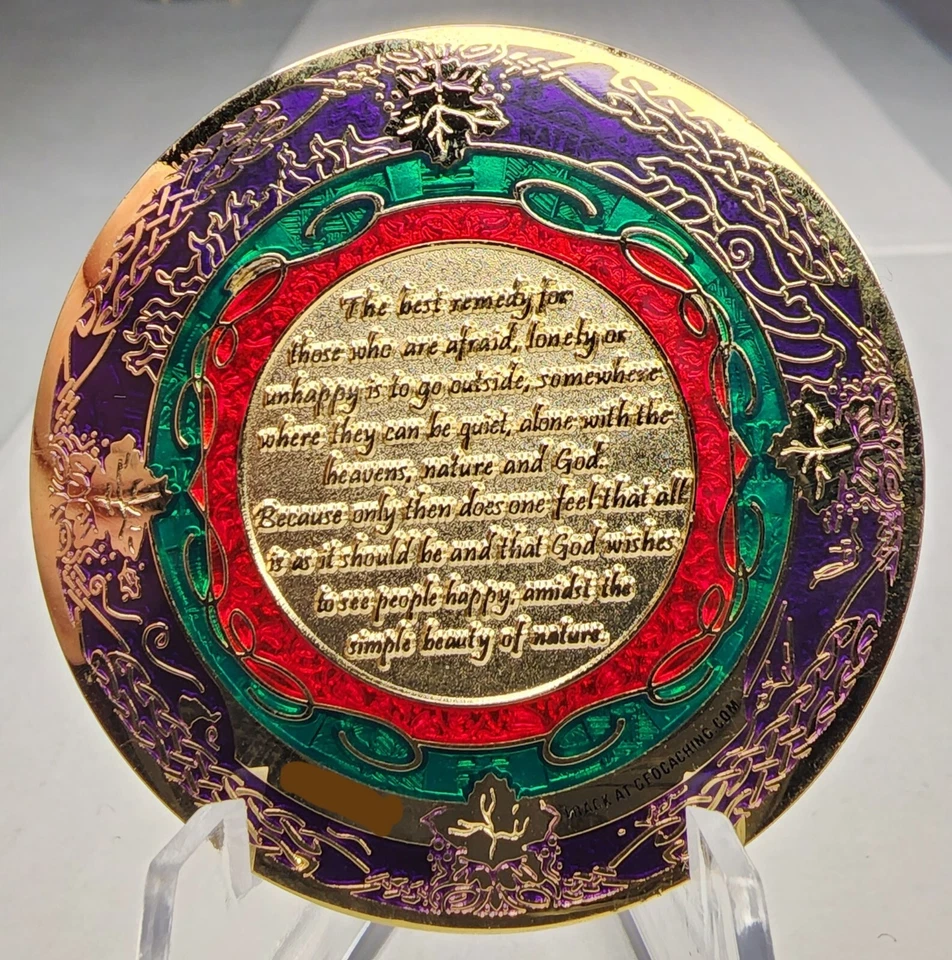 The best remedy for
those who are afraid, lonely or
unhappy is to go outside, somewhere
where they can be quiet, alone with the
heavens, nature and God.
Because only then does one feel that all
is as it should be and that God wishes
to see people happy, amidst the
simple beauty of nature.
TRACK AT GEOCACHING.COM